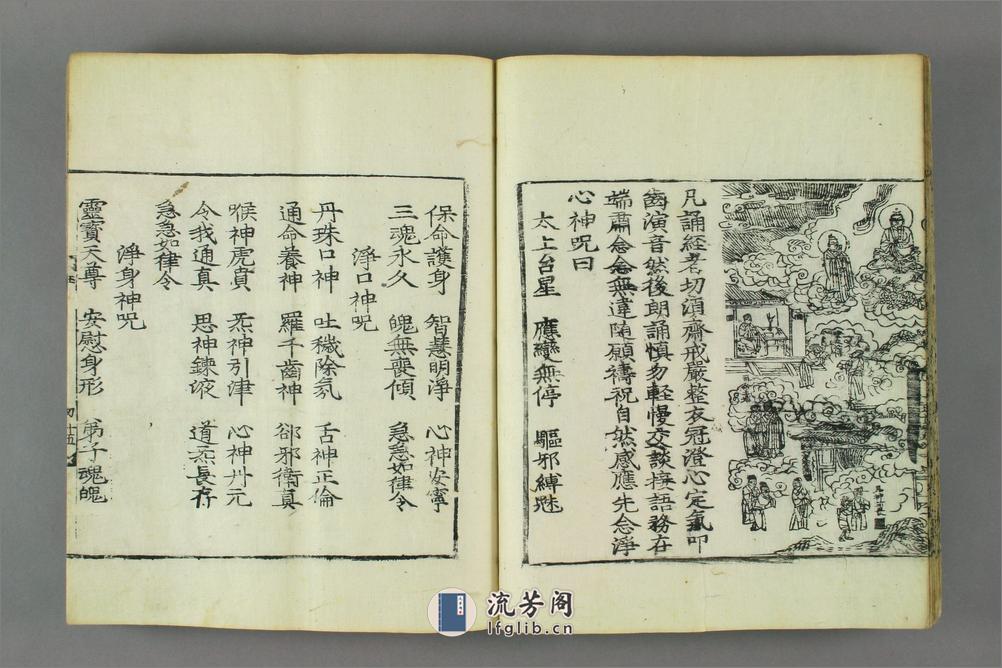 凡誦經者切須齋戒嚴整衣冠澄心定氣叩
齒演音然後朗誦慎勿輕慢交談接語務在
端肅念念無違随願禱祝自然感應先念淨
心神咒曰
太上台星　應變無停　驅邪縛魅
保命護身　智慧明淨　心神安寧
三魂永久　魄無喪傾　急急如律令
淨口神咒
丹珠口神　吐穢除氛　舌神正倫
通命養神　羅千齒神　郤邪衛真
喉神虎賁　炁神引津　心神丹元
令我通真　思神鍊液　道炁長存
急急如律令
淨身神咒
靈寳天尊　安慰身形　弟子魂魄
流芳阁
lfglib.cn